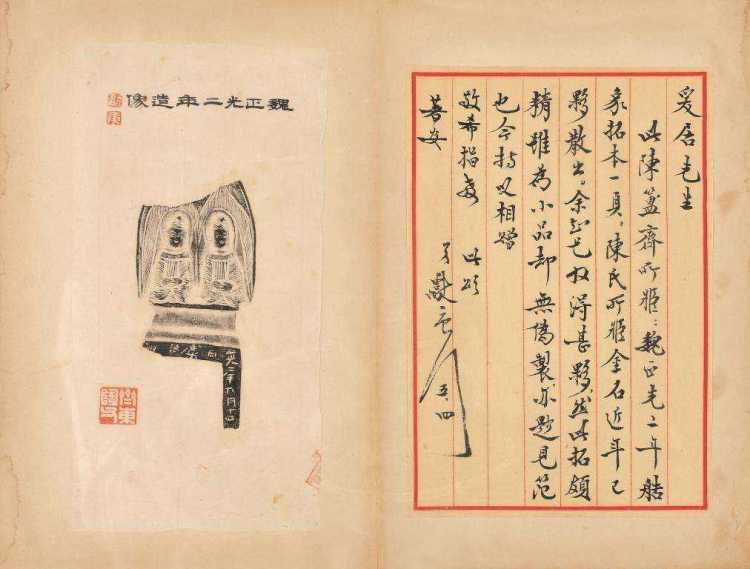 爰居先生
此陳簠齋所藏：魏正光二年艁
象拓本一頁，陳氏所藏金石近年已
夥散出，余收得甚夥，然此拓頗
精雖為小品却無偽製亦見范
也今持以相贈
敬希指教 此頌
著安
弟 五.四
魏正光二年造像
正光二年八月十四